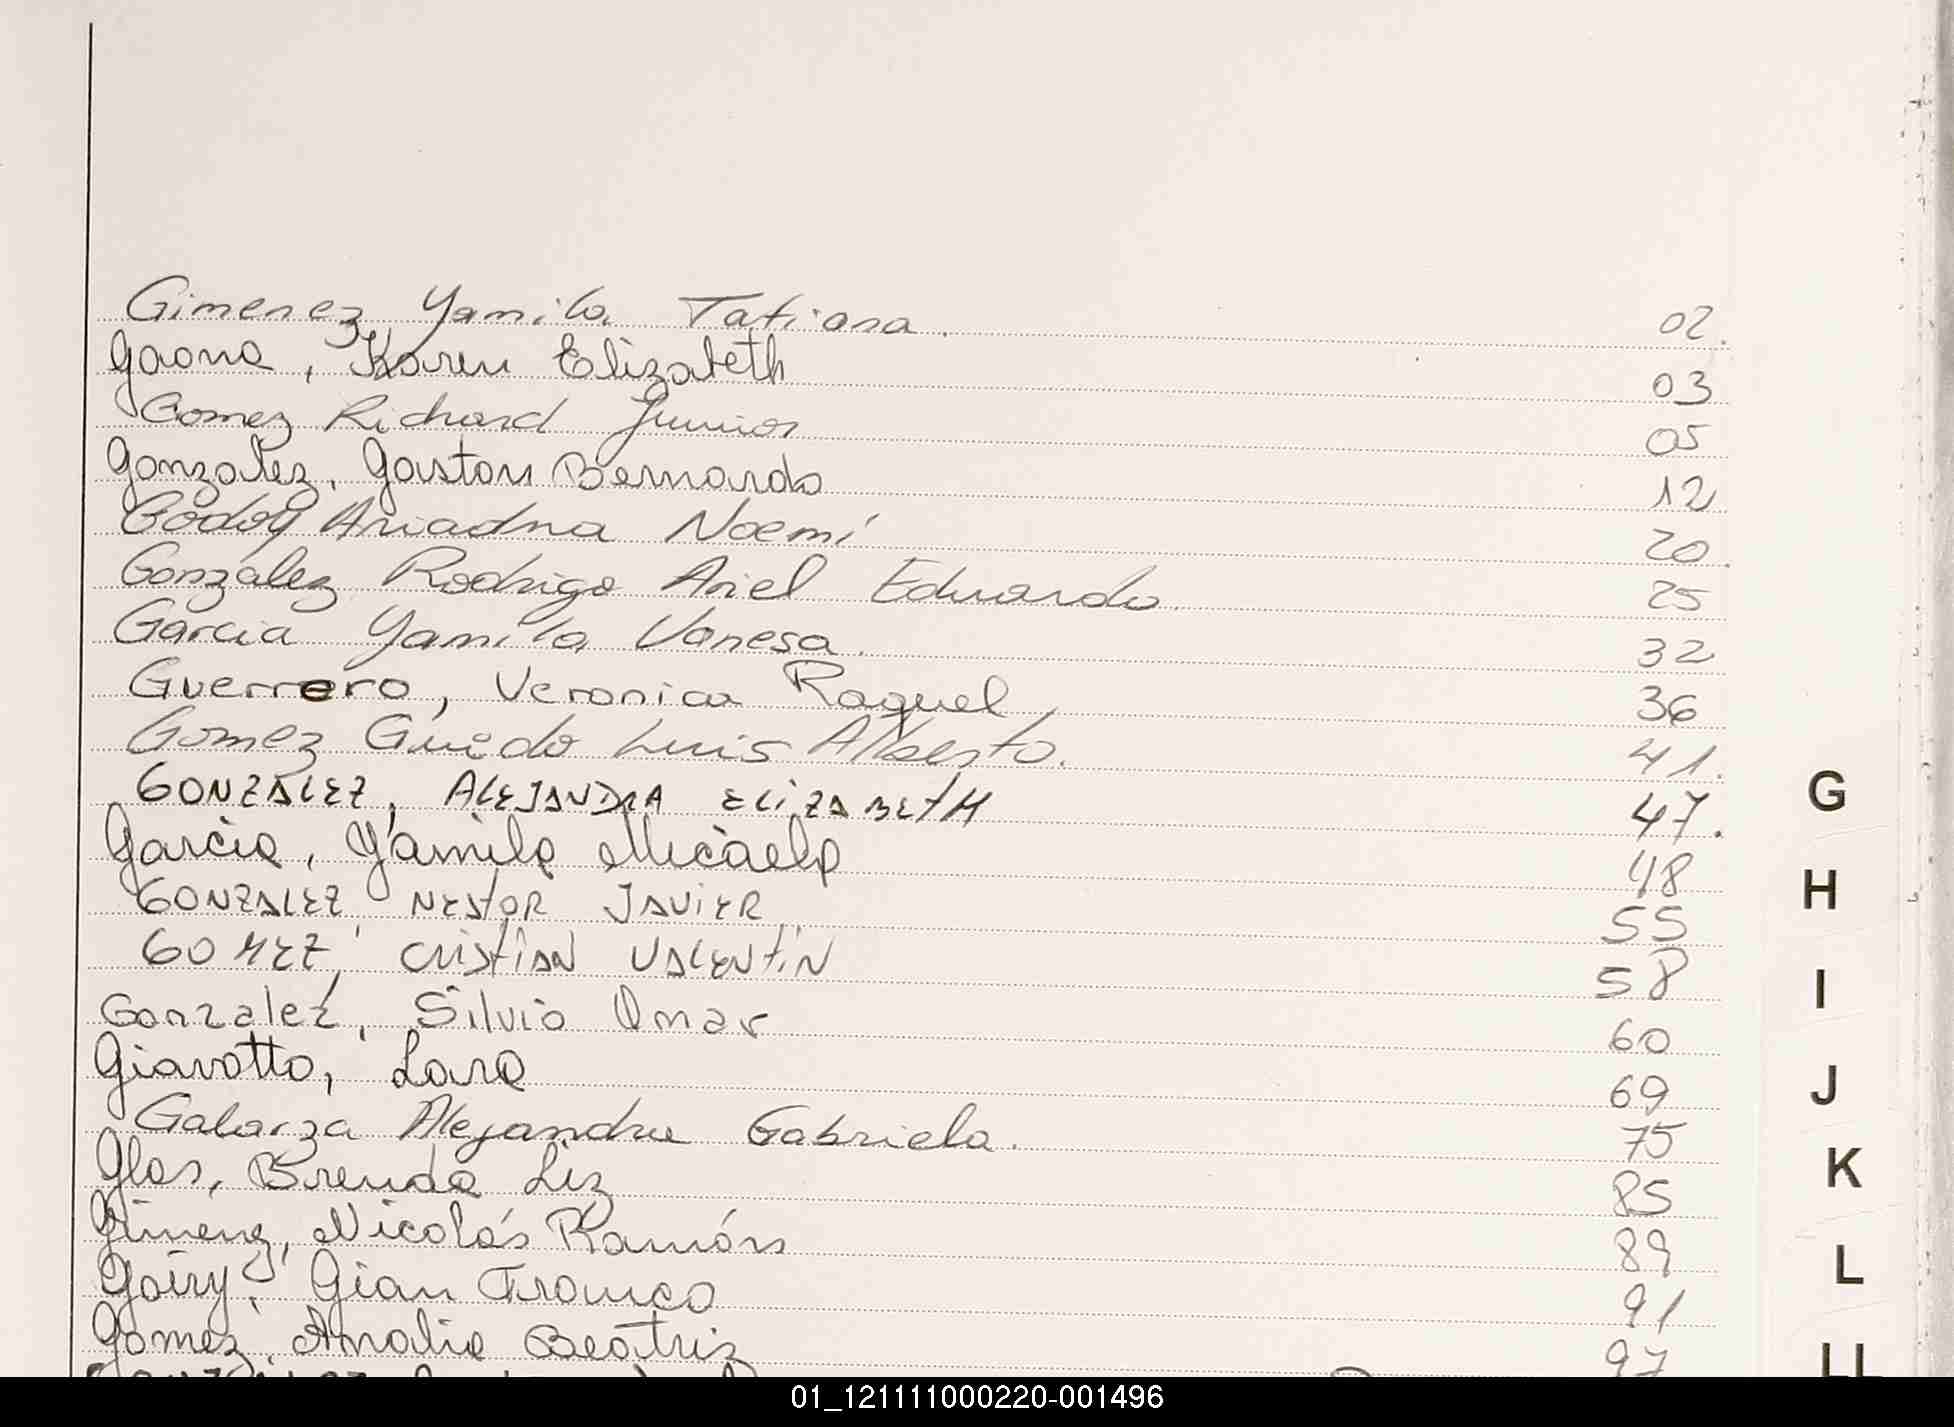 Gimenez Yamila Tatiana. 02.
Gaona, Karen Elizabeth 03
Gomez Richard Junior 05
Gonzalez, Gaston Bernardo 12
Godoy Ariadna Noemí 20.
Gonzalez Rodrigo Ariel Eduardo 25
Garcia Yamila Vanesa. 32
Guerrero, Veronica Raquel 36
Gomez Guido Luis Alberto. 41.
GONZALEZ, ALEJANDRA ELIZABETH 47.
Garcia, Yamila Micaela 48
GONZALEZ NESTOR JAVIER 55
GOMEZ, CRISTIAN VALENTIN 58
Gonzalez, Silvio Omar 60
Giavotto, Lara 69
Galarza Alejandra Gabriela. 75
Glas, Brenda Liz 85
Gimenez, Nicolás Ramón 89
Goiry, Gian Franco 91
Gomez, Analia Beatriz 97
G
H
I
J
K
L
01_121111000220-001496